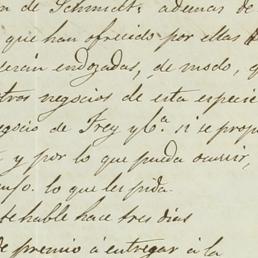 n de Schmidt, ademas de
que han ofrecido por ellas
serán endozadas, de modo, q
tros negocios de esta especie
egocio de Frey y Cª. si se prop
y por lo que pueda ocurrir,
lo que les pida.
te hable hace tres dias
de premio á entregar á la